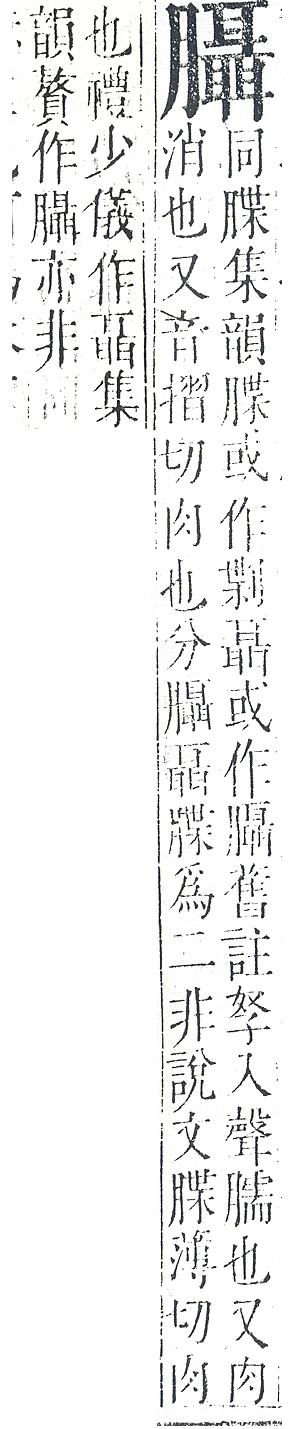 同䐑集韻䐑或作聶或作舊註孥入聲臑也又肉
消也又音摺切肉也分聶牒爲二非說文䐑薄切肉
也禮少儀作聶集
韻贅作亦非